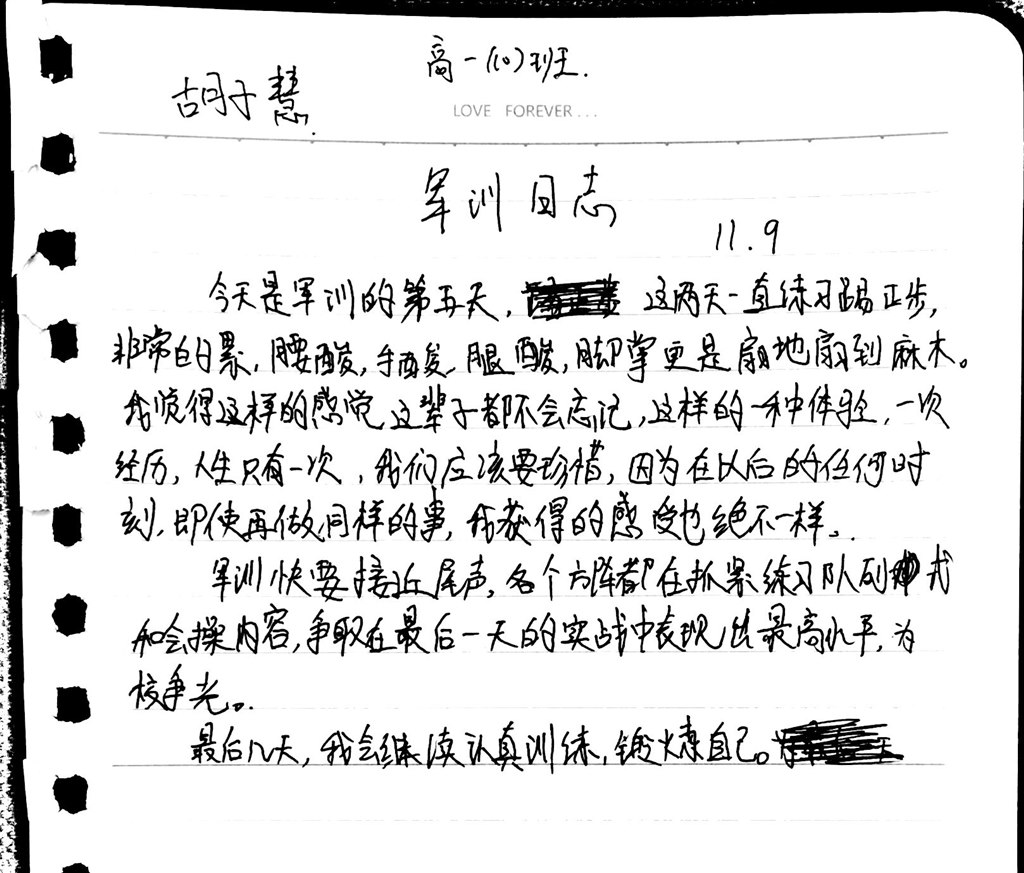 高一(10)班.
胡子慧.
LOVE FOREVER...
军训日志
11.9
今天是军训的第五天, 这两天一直练习踢正步,
非常的累,腰酸,手酸,腿酸,脚掌更是扇地扇到麻木。
我觉得这样的感觉这辈子都不会忘记,这样的一种体验,一次
经历,人生只有一次,我们应该要珍惜,因为在以后的任何时
刻,即使再做同样的事,我获得的感受也绝不一样。
军训快要接近尾声,各个方阵都在抓紧练习队列式
和会操内容,争取在最后一天的实战中表现出最高水平,为
校争光。
最后几天,我会继续认真训练,锻炼自己。